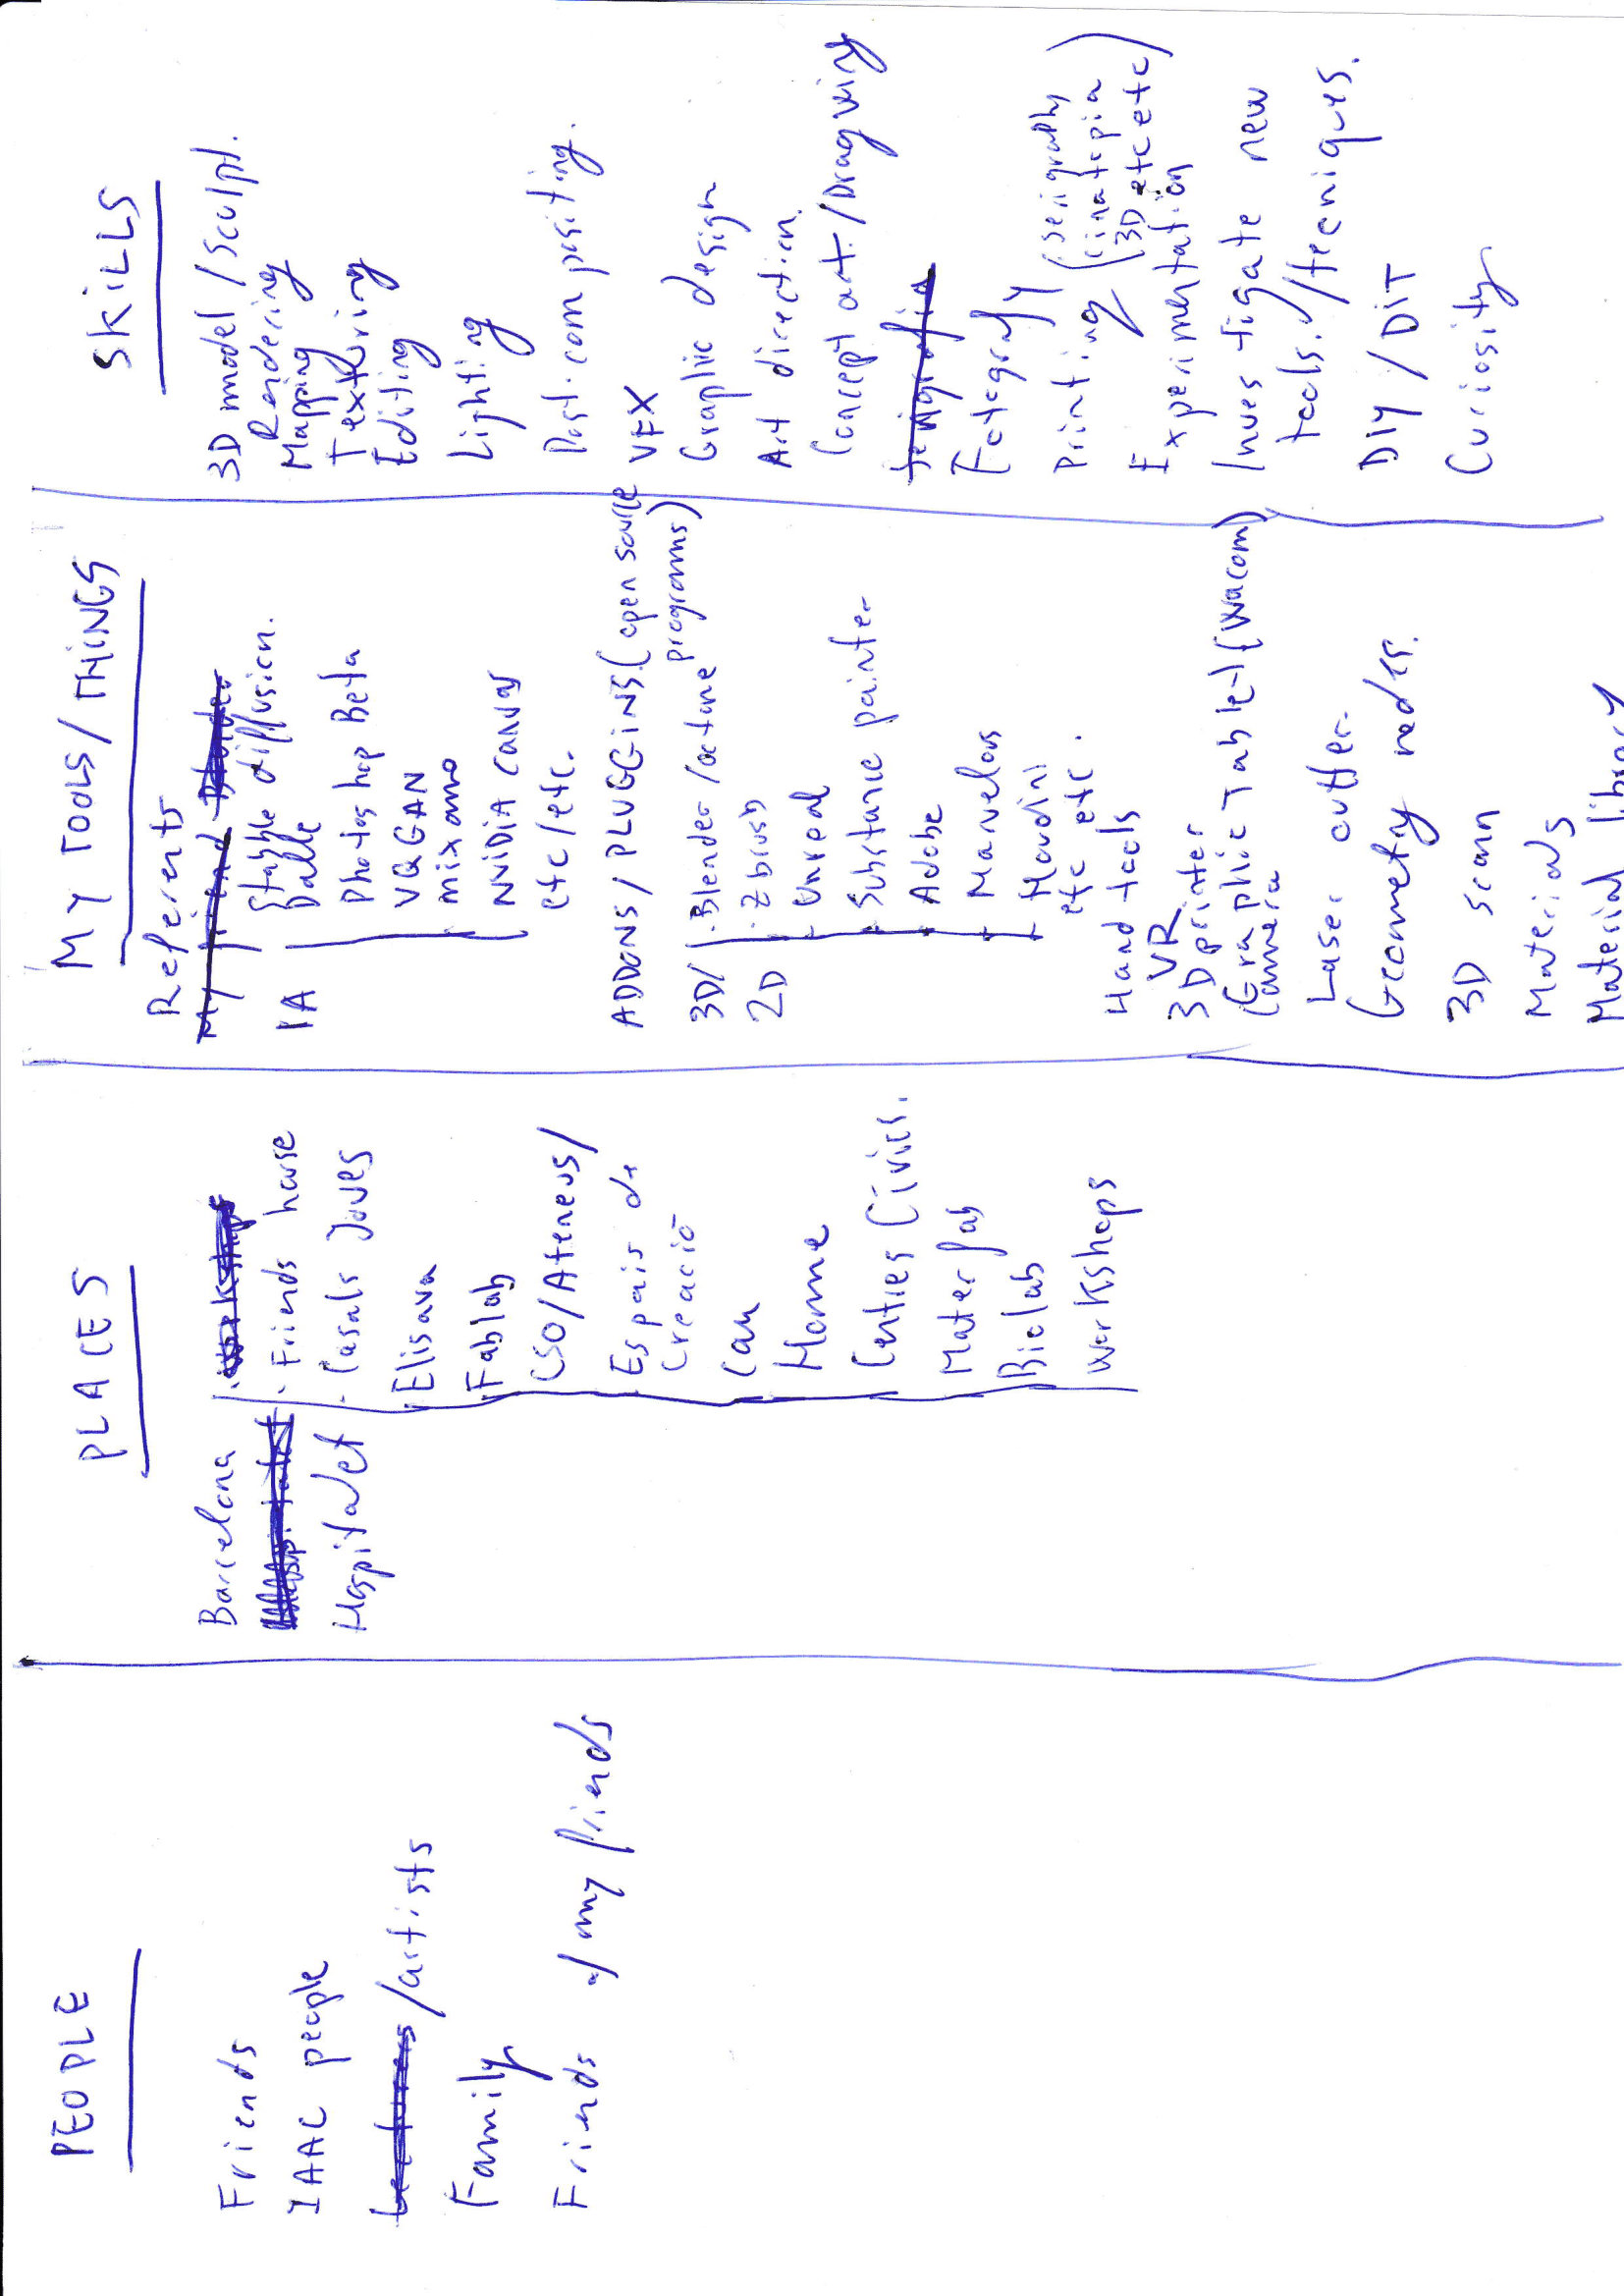 PEOPLE
Friends
IAAC people
Lecturers /artists
Family
Friends of my friends
PLACES
Barcelona
Hospitalet
Hospitalet
. workshops
. Friends house
. Casals Joves
Elisava
Fablab
CSO/Ateneus/
Espais de
Creació
Can
Home
Centres Civics.
Mater fab
Biolab
Workshops
MY TOOLS/THINGS
Referents
My friend Blender
IA
Stable diffusion.
Dalle
Photoshop Beta
VQGAN
mixamo
NVIDIA canvas
etc/etc.
ADDONS/PLUGGINS (open source
programs)
3D/
2D
. Blender/octane
. Zbrush
Unreal
Substance painter
Adobe
Marvelous
Houdini
etc etc.
Hand tools
VR
3D printer
Graphic Tablet (Wacom)
Camera
Laser cutter
Geometry nodes.
3D scan
Materials
Material library
SKILLS
3D model/Sculpt.
Rendering
Mapping
Texturing
Editing
Lighting
Post. compositing.
VFX
Graphic design
Art direction.
Concept art./Dragwing
serigrafia
Fotografy
Printing (serigraphy
cinatopia
3D etc etc)
Experimentation
Investigate new
tools./tecniques.
DIY/DIT
Curiosity